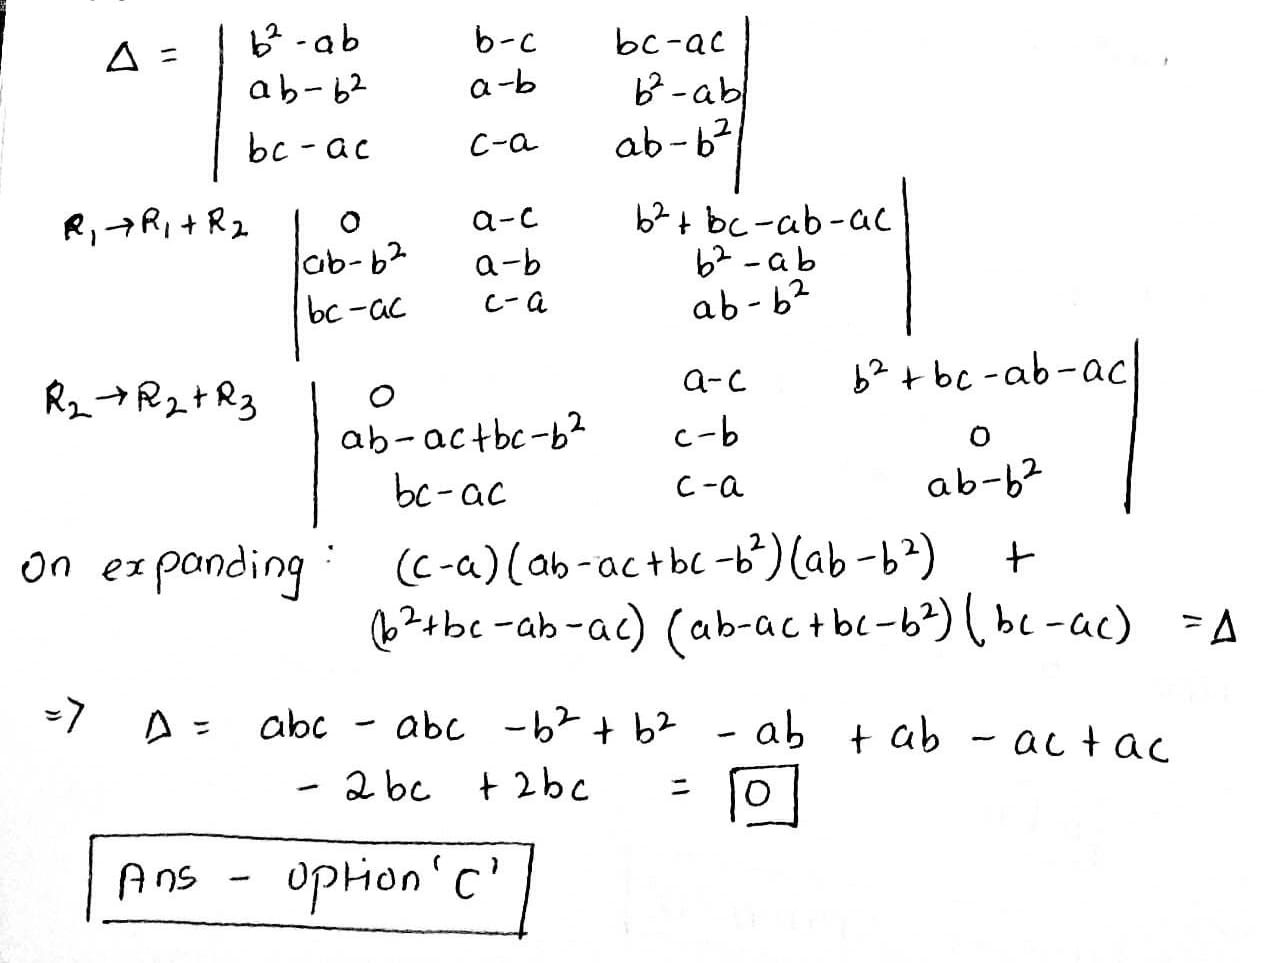 Δ = | b²-ab b-c bc-ac |
| ab-b² a-b b²-ab |
| bc-ac c-a ab-b² |
R₁→R₁+R₂ | 0 a-c b²+bc-ab-ac |
| ab-b² a-b b²-ab |
| bc-ac c-a ab-b² |
R₂→R₂+R₃ | 0 a-c b²+bc-ab-ac |
| ab-ac+bc-b² c-b 0 |
| bc-ac c-a ab-b² |
On expanding: (c-a)(ab-ac+bc-b²)(ab-b²) +
(b²+bc-ab-ac) (ab-ac+bc-b²)(bc-ac) = Δ
=> Δ = abc - abc -b²+b² - ab + ab - ac + ac
- 2bc + 2bc = 0
Ans - option 'C'